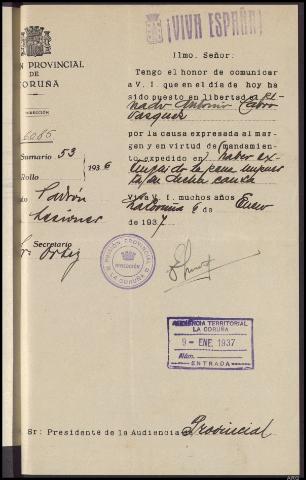 ¡VIVA ESPAÑA!
ÓN PROVINCIAL
DE
CORUÑA
DIRECCIÓN
6085
Sumario 53/1936
Rollo
Padrón
Lesiones
Secretario
Sr. Ortiz
Ilmo. Señor:
Tengo el honor de comunicar
a V. I. que en el día de hoy ha
sido puesto en libertad el pe
nado Antonio Calvo
Vazquez
por la causa expresada al mar-
gen y en virtud de (mandamien-
to expedido en) haber ex-
tinguido la pena impues-
ta en dicha causa
Viva V. I. muchos años
La Coruña 6 de Enero
de 1937
PRISIÓN PROVINCIAL
DIRECCIÓN
LA CORUÑA
AUDIENCIA TERRITORIAL
LA CORUÑA
9 - ENE. 1937
Núm.
ENTRADA
Sr: Presidente de la Audiencia Provincial